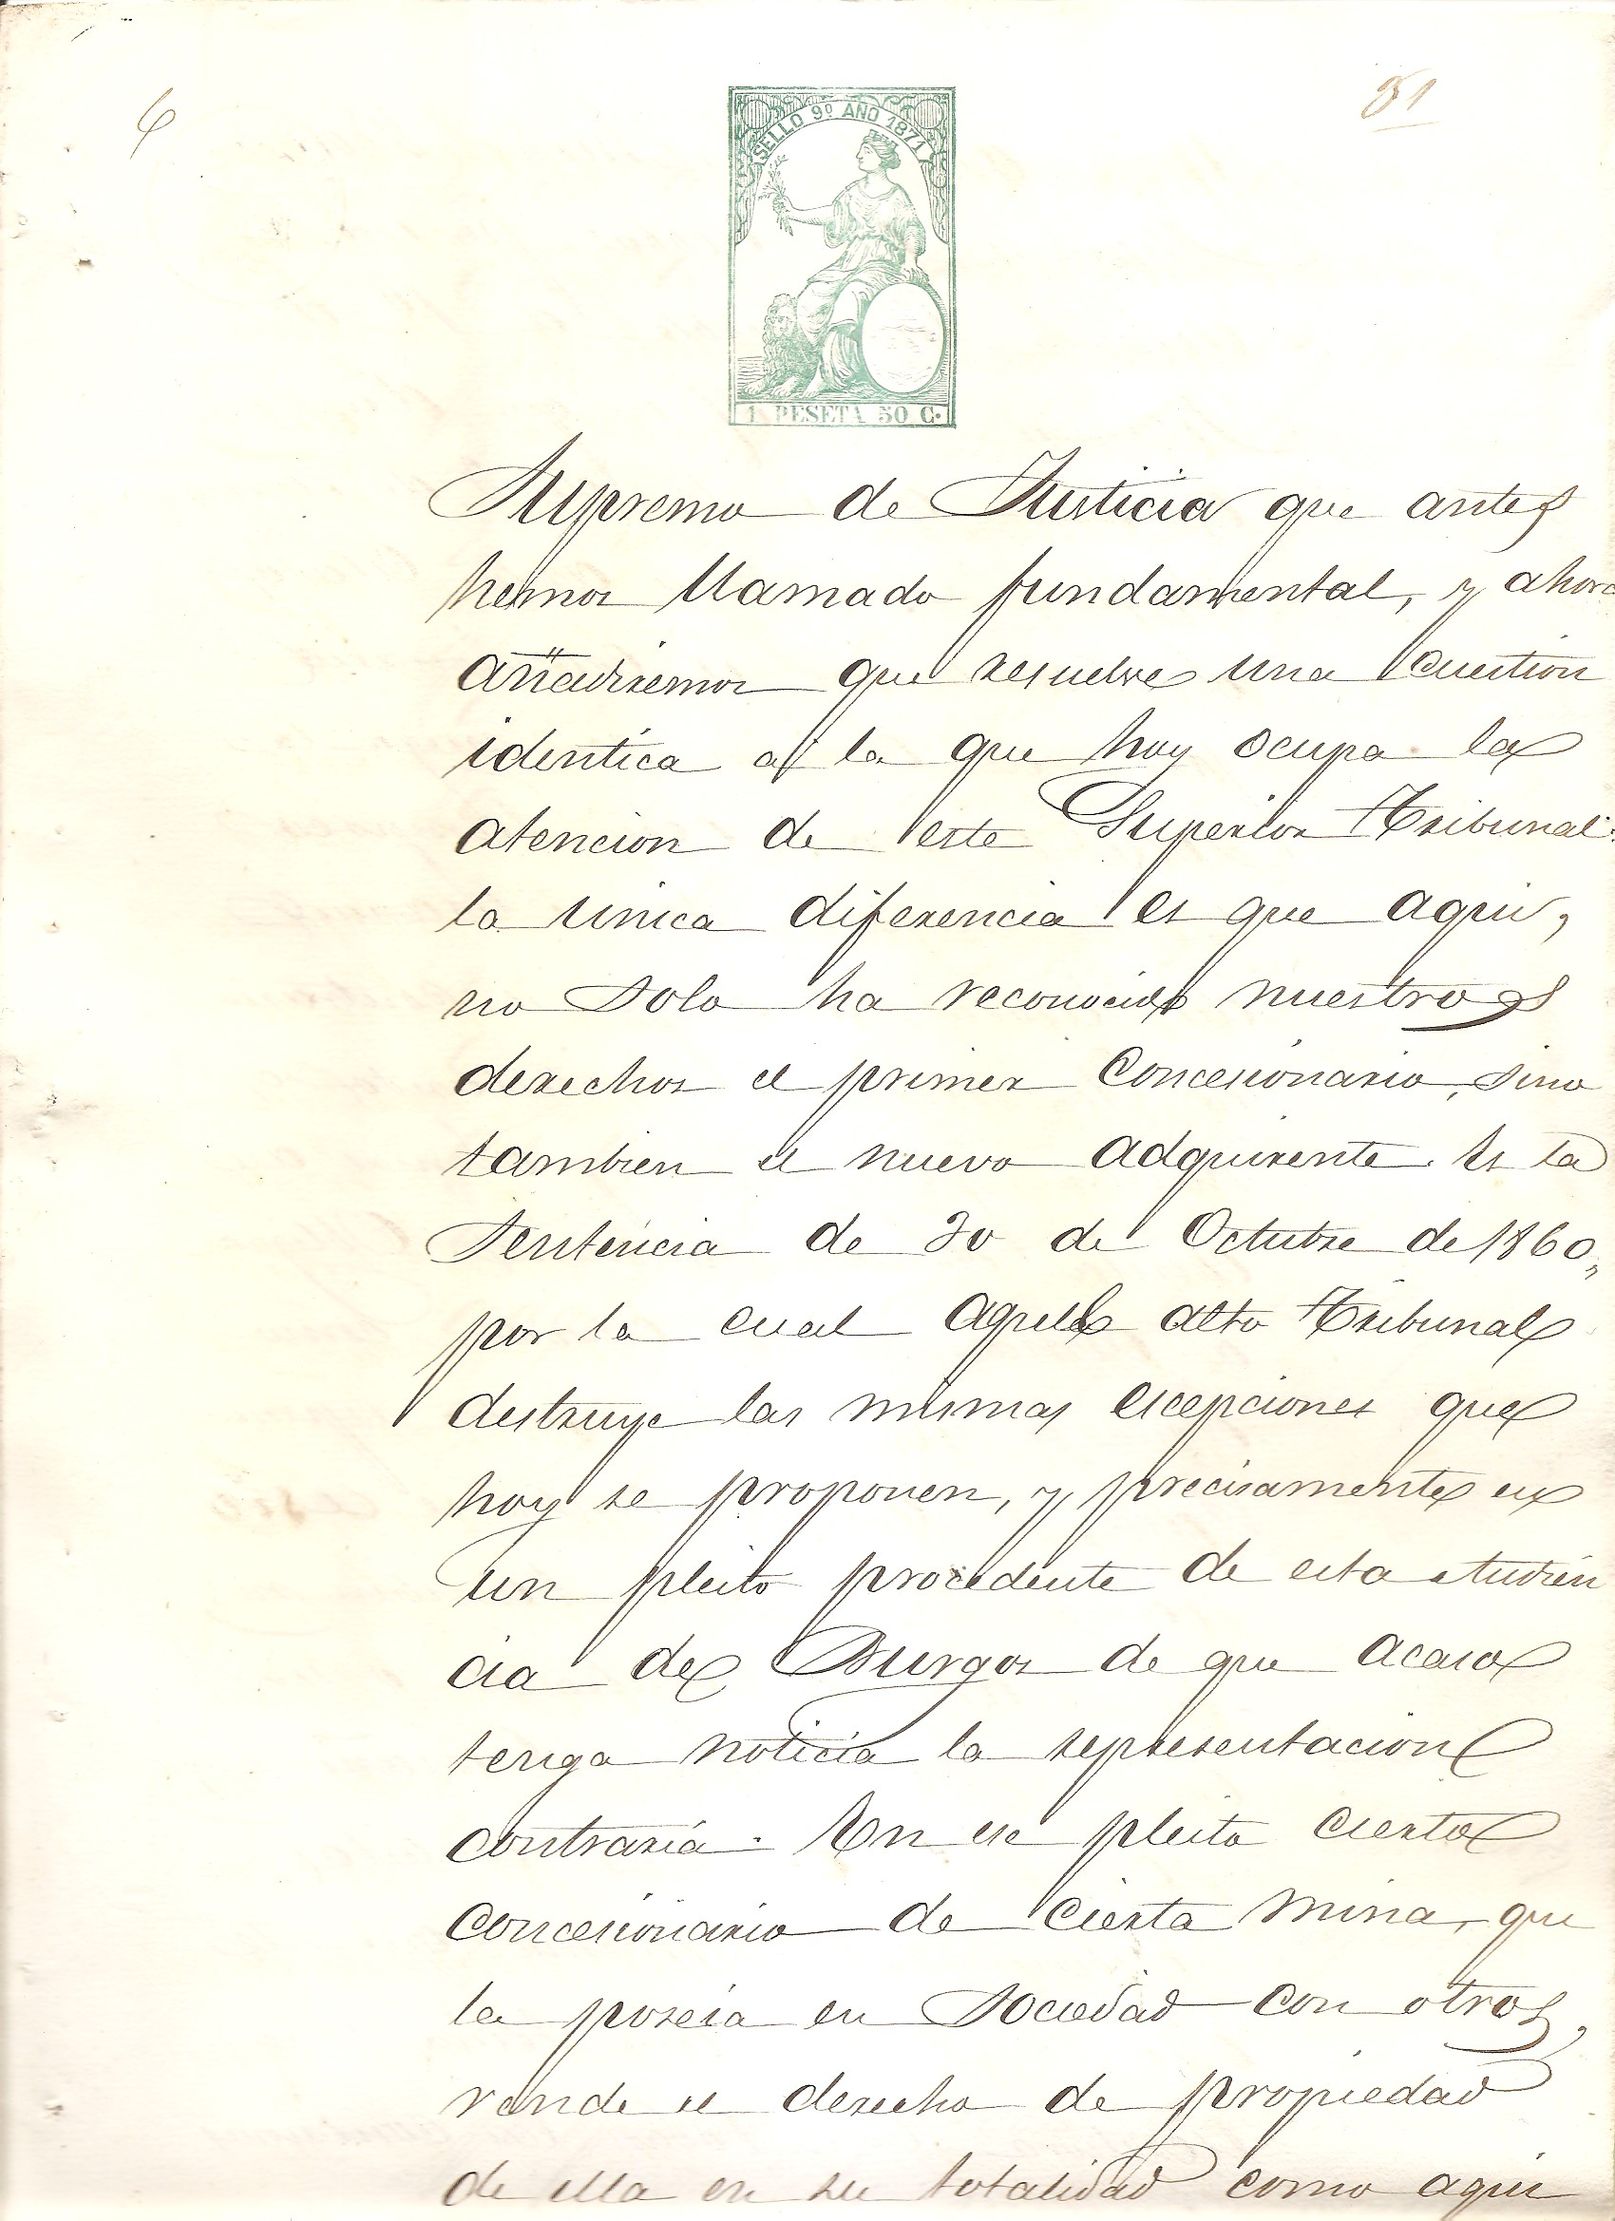 6
81
SELLO 9º AÑO 1871
1 PESETA 50 C.
Supremo de Justicia que antes
hemos llamado fundamental, y ahora
añadiremos que resuelve una cuestion
identica a la que hoy ocupa la
atencion de este Superior Tribunal:
la unica diferencia es que aqui,
no solo ha reconocido nuestros
derechos el primer concesionario, sino
tambien el nuevo adquirente. Es la
Sentencia de 30 de Octubre de 1860,
por la cual aquel alto Tribunal
destruye las mismas escepciones que
hoy se proponen, y precisamente en
un pleito procedente de esta Audien
cia de Burgos de que acaso
tenga noticia la representacion
contraria. En ese pleito cierto
concesionario de cierta mina, que
la poseia en Sociedad con otros,
vende el derecho de propiedad
de ella en su totalidad como aqui